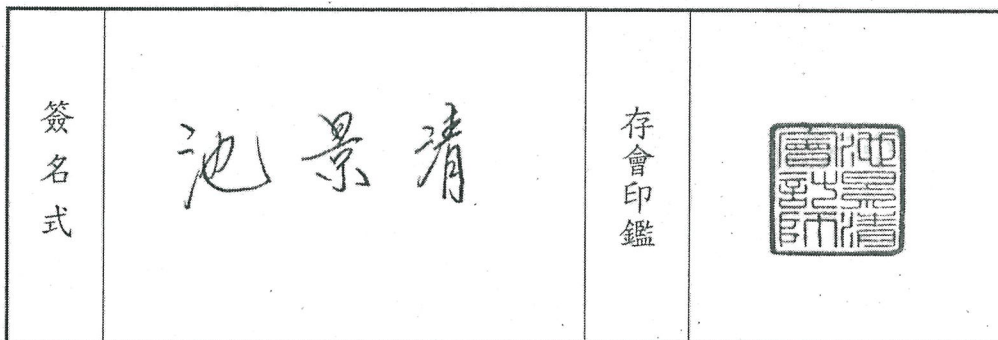 簽名式
池景清
存會印鑑
池景清
會計師